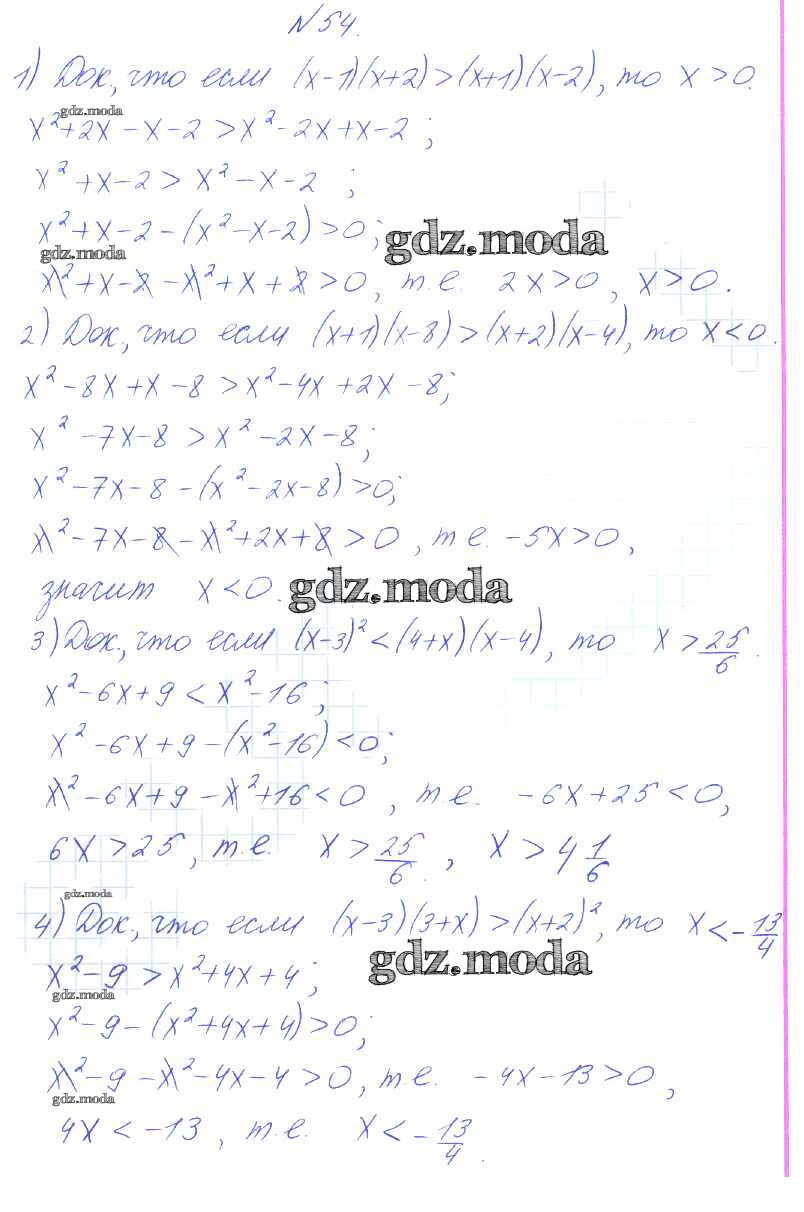 №54.
1) Док, что если (x-1)(x+2)>(x+1)(x-2), то x>0.
gdz.moda
x²+2x-x-2>x²-2x+x-2;
x²+x-2>x²-x-2;
x²+x-2-(x²-x-2)>0;
gdz.moda
gdz.moda
x²+x-2-x²+x+2>0, т.е. 2x>0, x>0.
2) Док, что если (x+1)(x-8)>(x+2)(x-4), то x<0.
x²-8x+x-8>x²-4x+2x-8;
x²-7x-8>x²-2x-8;
x²-7x-8-(x²-2x-8)>0;
x²-7x-8-x²+2x+8>0, т.е. -5x>0,
значит x<0.
gdz.moda
3) Док, что если (x-3)²<(4+x)(x-4), то x>25/6.
x²-6x+9<x²-16;
x²-6x+9-(x²-16)<0;
x²-6x+9-x²+16<0, т.е. -6x+25<0,
6x>25, т.е. x>25/6, x>4 1/6
gdz.moda
4) Док, что если (x-3)(3+x)>(x+2)², то x<-13/4
x²-9>x²+4x+4;
gdz.moda
gdz.moda
x²-9-(x²+4x+4)>0;
x²-9-x²-4x-4>0, т.е. -4x-13>0,
gdz.moda
4x<-13, т.е. x<-13/4.